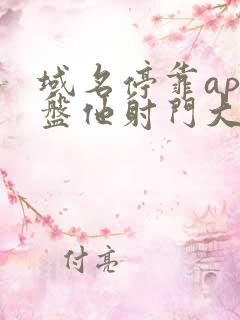 域名停靠ap
盤他射門大
付亮